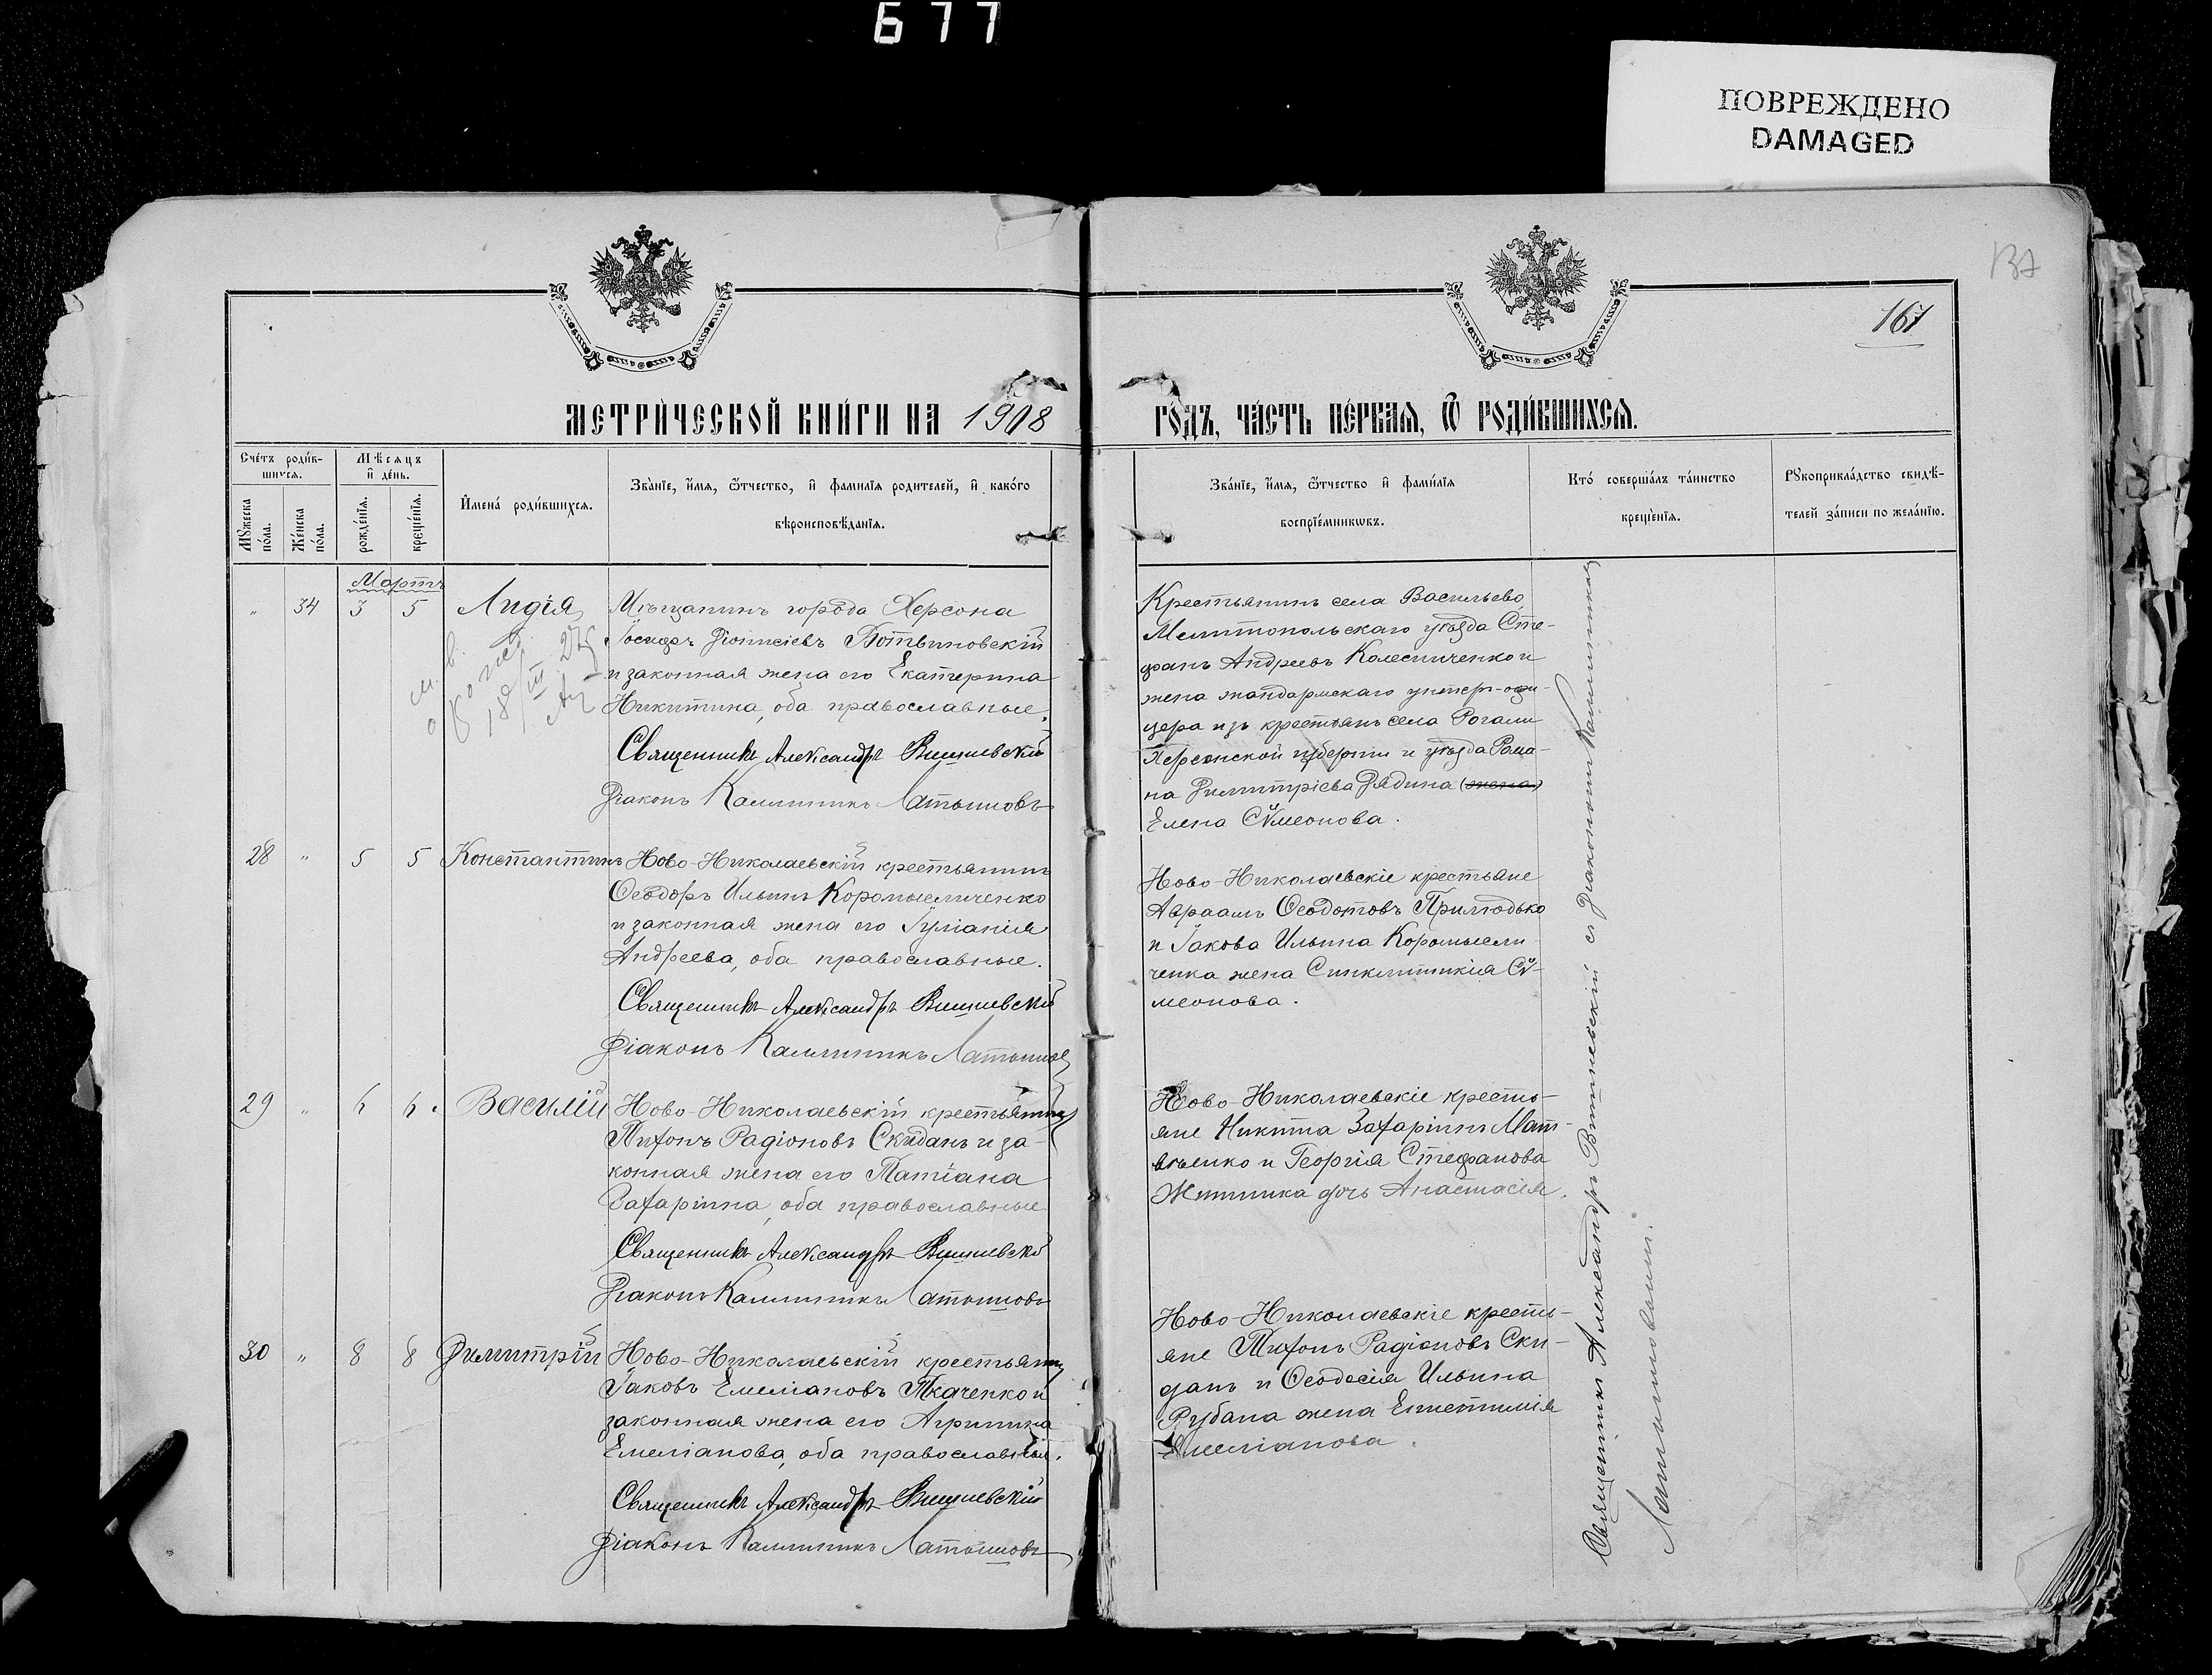 677
ПОВРЕЖДЕНО
DAMAGED
137
167
МЕТРИ́ЧЕСКОЙ КНИ́ГИ НА 1908 ГО́ДЪ, ЧА́СТЬ ПЕ́РВАЯ, Ѿ РОДИ́ВШИХСЯ.
Сче́тъ роди́в-
шихся.
Мѣ́сяцъ
и҆ де́нь.
Мꙋ́жеска
по́ла.
Же́нска
по́ла.
рожде́нїѧ.
креще́нїѧ.
И҆мена̀ роди́вшихсѧ.
Зва́нїе, и҆́мѧ, ѻ҆́тчество, и҆ фамилїѧ родителей, и҆ како́го
вѣроисповѣ́данїѧ.
Зва́нїе, и҆́мѧ, ѻ҆́тчество и҆ фами́лїѧ
воспрїе́мникѡвъ.
Кто́ соверша́лъ та́инство
креще́нїѧ.
Рꙋкоприкла́дство свидѣ́-
телей за́писи по жела́нїю.
Мартъ
" 34 3 5 Лидія
Мѣщанинъ города Херсона
Іосифъ Діонисіевъ Потвиновскій
и законная жена его Екатерина
Никитина, оба православные.
Священникъ Александръ Вишневскій
Діаконъ Каллиникъ Латышовъ
м. в.
18/III 27
Крестьянинъ села Васильево,
Мелитопольскаго уѣзда Сте-
фанъ Андреевъ Колесниченко и
жена жандармскаго унтеръ-офи-
цера изъ крестьянъ села Рогали
Херсонской губерніи и уѣзда Рома-
на Димитріева Дядина (жена)
Елена Сѵмеонова.
28 " 5 5 Константинъ
Ново-Николаевскій крестьянинъ
Ѳеодоръ Ильинъ Коромысличенко
и законная жена его Іуліанія
Андреева, оба православные.
Священникъ Александръ Вишневскій
Діаконъ Каллиникъ Латышовъ
Ново-Николаевскіе крестьяне
Авраамъ Ѳеодотовъ Прилюдько
и Іакова Ильина Коромысли-
ченка жена Синклитикія Сѵ-
меонова.
29 " 6 6. Василій
Ново-Николаевскій крестьянинъ
Тихонъ Радіоновъ Скиданъ и за-
конная жена его Татіана
Захаріина, оба православные
Священникъ Александръ Вишневскій
Діаконъ Каллиникъ Латышовъ
Ново-Николаевскіе кресть-
яне Никита Захаріинъ Мат-
вѣенко и Георгія Стефанова
Житника дочь Анастасія.
30 " 8 8 Димитрій
Ново-Николаевскій крестьянинъ
Іаковъ Емеліановъ Ткаченко и
законная жена его Агриппина
Емеліанова, оба православные.
Священникъ Александръ Вишневскій
Діаконъ Каллиникъ Латышовъ
Ново-Николаевскіе кресть-
яне Тихонъ Радіоновъ Ски-
данъ и Ѳеодосія Ильина
Рубана жена Епистимія
Емеліанова.
Священникъ Александръ Вишневскій съ Діакономъ Каллиникомъ
Латышовымъ.